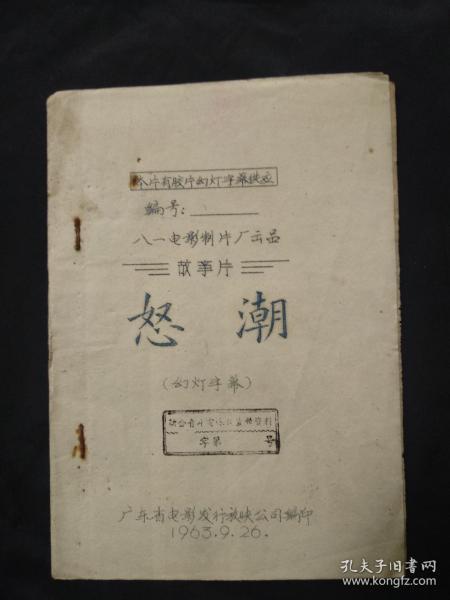 本片有胶片幻灯字幕供应
编号:
八一电影制片厂出品
故事片
怒潮
(幻灯字幕)
字第 号
广东省电影发行放映公司编印
1963.9.26.
孔夫子旧书网
www.kongfz.com